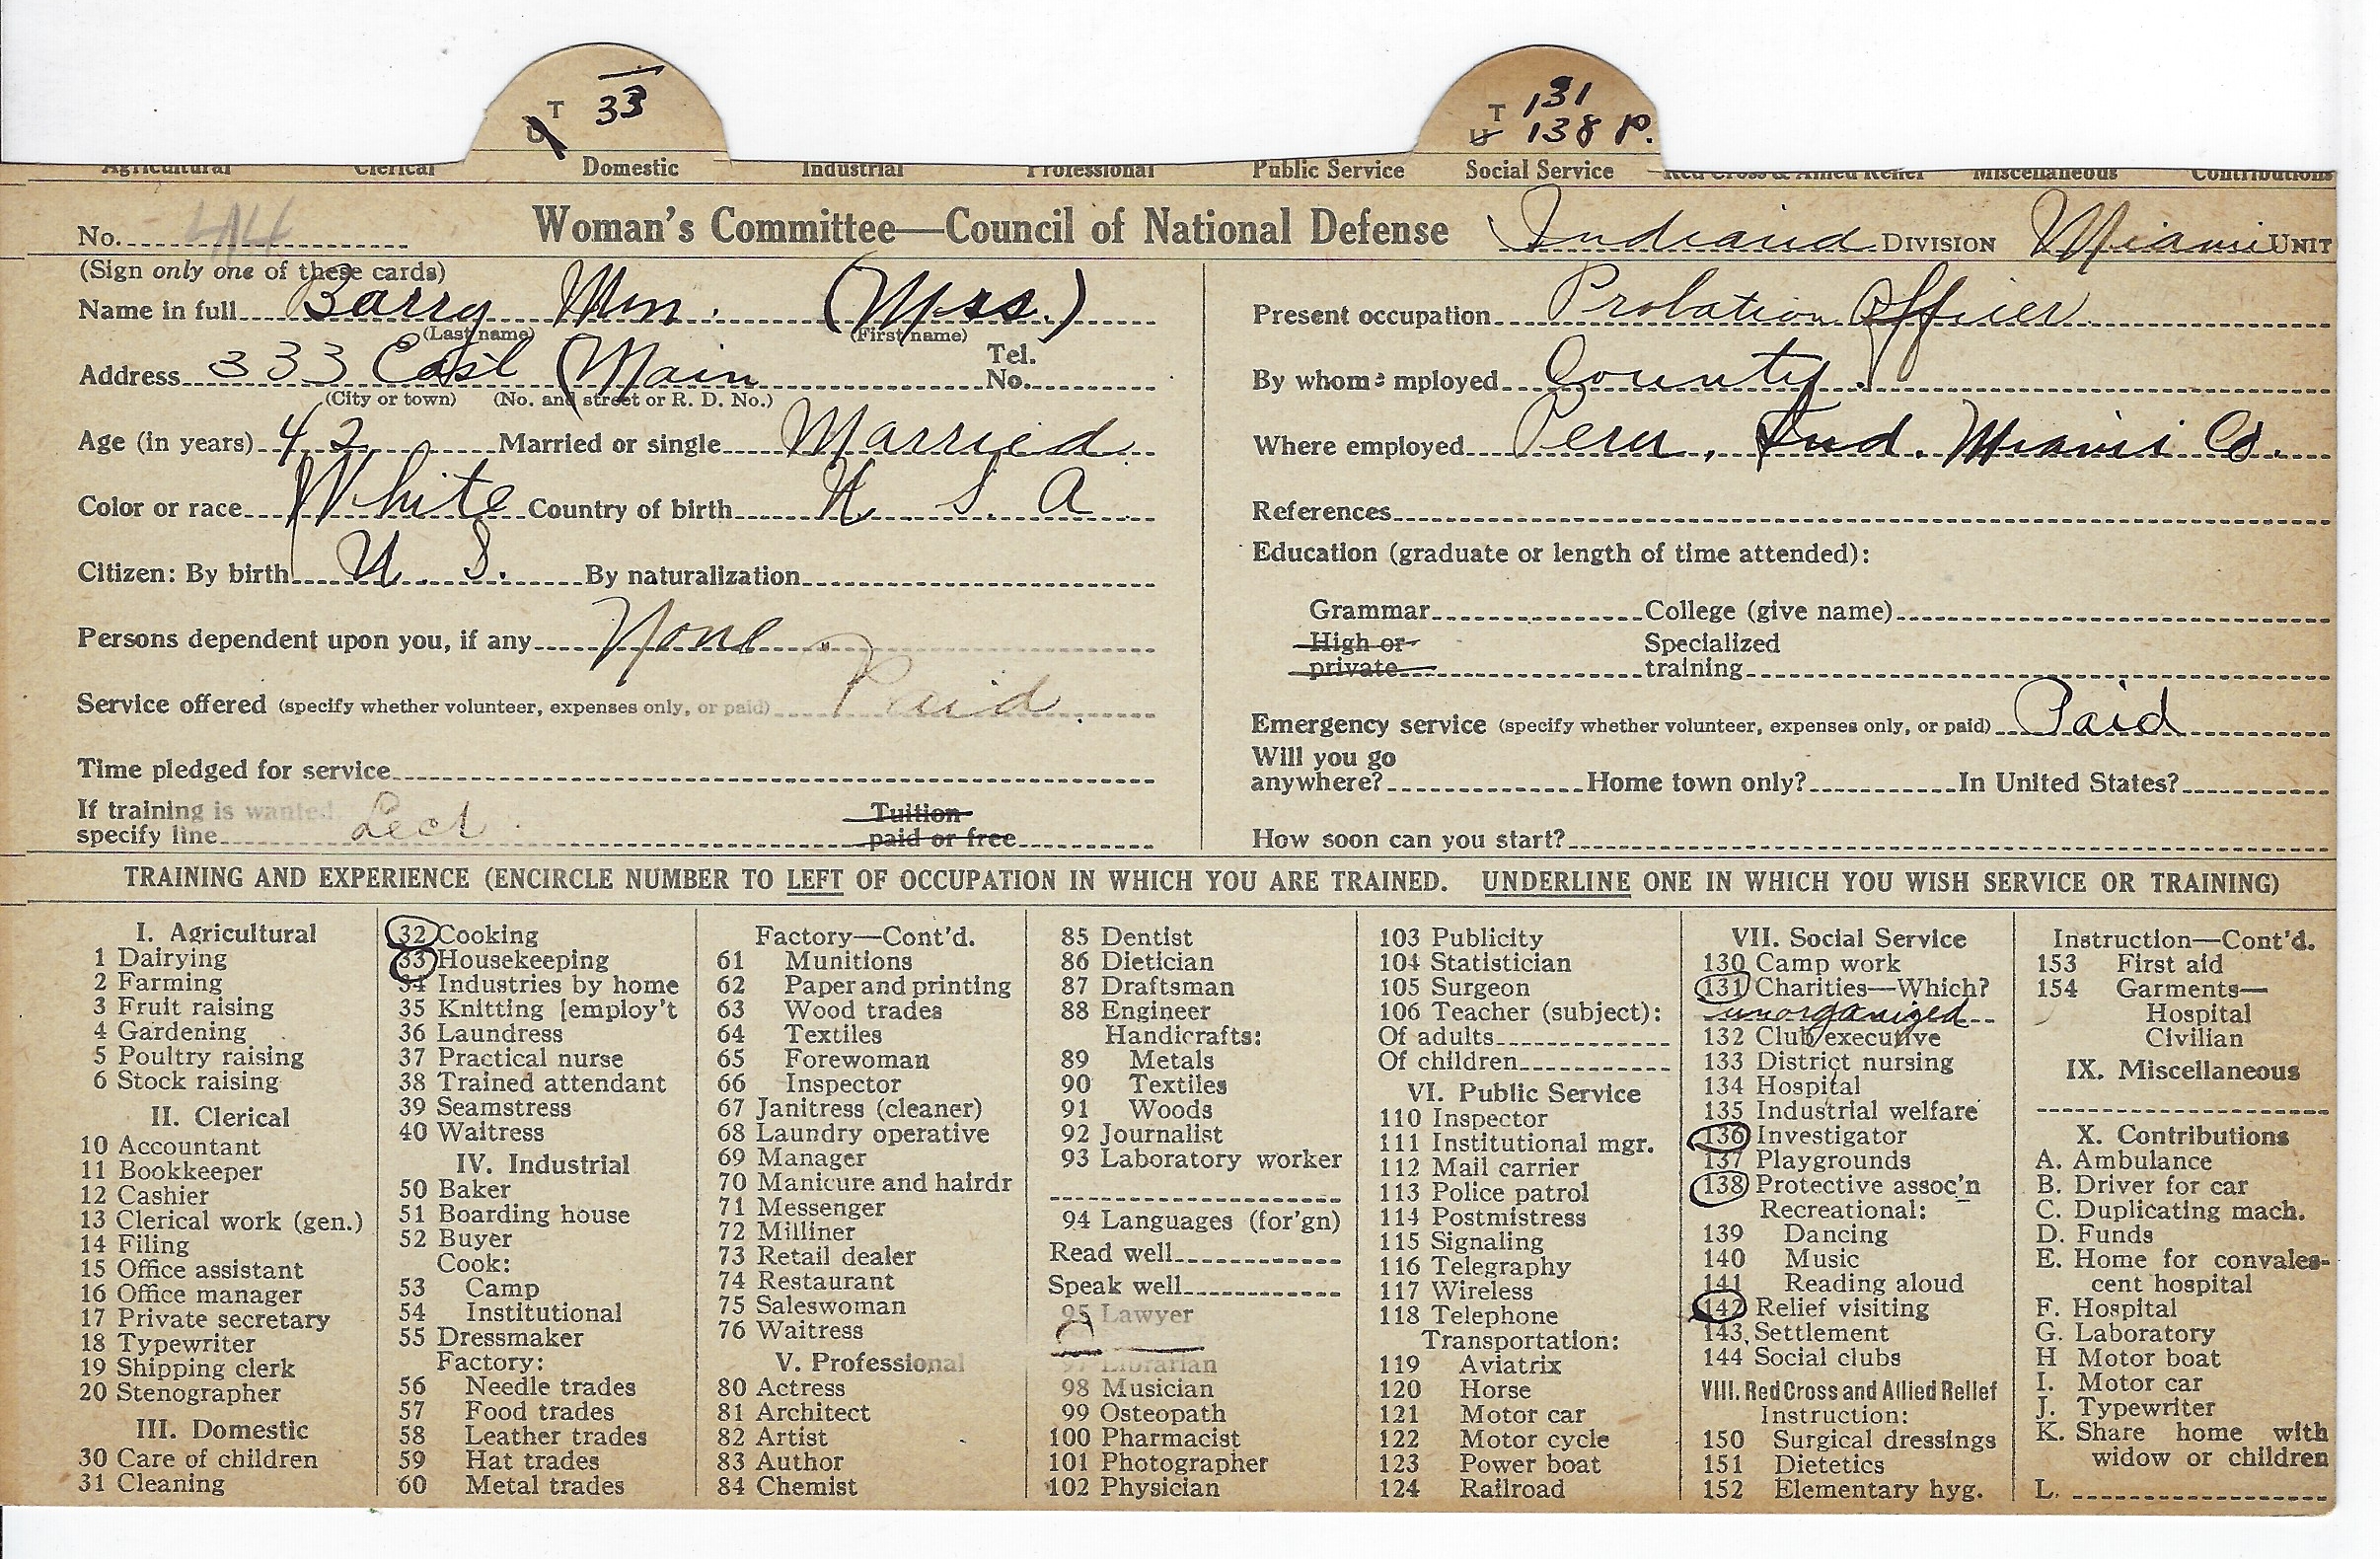 T 33
U
T 131
U 138 P.
Agricultural Clerical Domestic Industrial Professional Public Service Social Service Red Cross & Allied Relief Miscellaneous Contributions
No. 414 Woman's Committee—Council of National Defense Indiana DIVISION Miami UNIT
(Sign only one of these cards)
Name in full Barry Wm. (Mrs.)
(Last name) (First name)
Address 333 East Main Tel. No.
(City or town) (No. and street or R. D. No.)
Age (in years) 42 Married or single Married
Color or race White Country of birth U. S. A.
Citizen: By birth U. S. By naturalization
Persons dependent upon you, if any None
Service offered (specify whether volunteer, expenses only, or paid) Paid
Time pledged for service
If training is wanted
specify line Tuition
paid or free
Present occupation Probation Officer
By whom employed County.
Where employed Peru, Ind. Miami Co.
References
Education (graduate or length of time attended):
Grammar College (give name)
High or Specialized
private training
Emergency service (specify whether volunteer, expenses only, or paid) Paid
Will you go
anywhere? Home town only? In United States?
How soon can you start?
TRAINING AND EXPERIENCE (ENCIRCLE NUMBER TO LEFT OF OCCUPATION IN WHICH YOU ARE TRAINED. UNDERLINE ONE IN WHICH YOU WISH SERVICE OR TRAINING)
I. Agricultural
1 Dairying
2 Farming
3 Fruit raising
4 Gardening
5 Poultry raising
6 Stock raising
II. Clerical
10 Accountant
11 Bookkeeper
12 Cashier
13 Clerical work (gen.)
14 Filing
15 Office assistant
16 Office manager
17 Private secretary
18 Typewriter
19 Shipping clerk
20 Stenographer
III. Domestic
30 Care of children
31 Cleaning
32 Cooking
33 Housekeeping
34 Industries by home
35 Knitting [employ't
36 Laundress
37 Practical nurse
38 Trained attendant
39 Seamstress
40 Waitress
IV. Industrial
50 Baker
51 Boarding house
52 Buyer
Cook:
53 Camp
54 Institutional
55 Dressmaker
Factory:
56 Needle trades
57 Food trades
58 Leather trades
59 Hat trades
60 Metal trades
Factory—Cont'd.
61 Munitions
62 Paper and printing
63 Wood trades
64 Textiles
65 Forewoman
66 Inspector
67 Janitress (cleaner)
68 Laundry operative
69 Manager
70 Manicure and hairdr
71 Messenger
72 Milliner
73 Retail dealer
74 Restaurant
75 Saleswoman
76 Waitress
V. Professional
80 Actress
81 Architect
82 Artist
83 Author
84 Chemist
85 Dentist
86 Dietician
87 Draftsman
88 Engineer
Handicrafts:
89 Metals
90 Textiles
91 Woods
92 Journalist
93 Laboratory worker
94 Languages (for'gn)
Read well
Speak well
95 Lawyer
97 Librarian
98 Musician
99 Osteopath
100 Pharmacist
101 Photographer
102 Physician
103 Publicity
104 Statistician
105 Surgeon
106 Teacher (subject):
Of adults
Of children
VI. Public Service
110 Inspector
111 Institutional mgr.
112 Mail carrier
113 Police patrol
114 Postmistress
115 Signaling
116 Telegraphy
117 Wireless
118 Telephone
Transportation:
119 Aviatrix
120 Horse
121 Motor car
122 Motor cycle
123 Power boat
124 Railroad
VII. Social Service
130 Camp work
131 Charities—Which?
unorganized
132 Club executive
133 District nursing
134 Hospital
135 Industrial welfare
136 Investigator
137 Playgrounds
138 Protective assoc'n
Recreational:
139 Dancing
140 Music
141 Reading aloud
142 Relief visiting
143 Settlement
144 Social clubs
VIII. Red Cross and Allied Relief
Instruction:
150 Surgical dressings
151 Dietetics
152 Elementary hyg.
Instruction—Cont'd.
153 First aid
154 Garments—
Hospital
Civilian
IX. Miscellaneous
X. Contributions
A. Ambulance
B. Driver for car
C. Duplicating mach.
D. Funds
E. Home for convales-
cent hospital
F. Hospital
G. Laboratory
H Motor boat
I. Motor car
J. Typewriter
K. Share home with
widow or children
L.